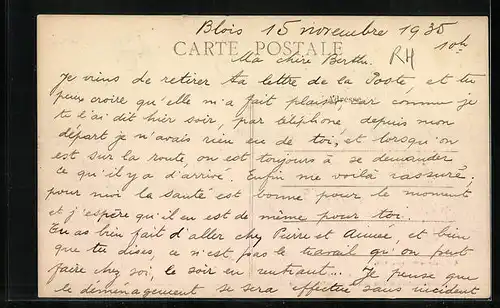 Blois 15 novembre 1935
CARTE POSTALE
10h
Ma chère Berthe.
RH
Je viens de retirer ta lettre de la Poste, et tu
peux croire qu'elle m'a fait plaisir, car comme je
t'ai dit hier soir, par téléphone, depuis mon
départ je n'avais rien eu de toi; et lorsqu'on
est sur la route, on est toujours à se demander
ce qu'il y a d'arrivé. Enfin me voilà rassuré.
pour moi la santé est bonne pour le moment
et j'espère qu'il en est de même pour toi.
Tu as bien fait d'aller chez Pierre et Aimée, et bien
que tu dises, ce n'est pas le travail qu'on peut
faire chez soi, le soir en rentrant... Je pense que
le déménagement se sera effectué sans incident